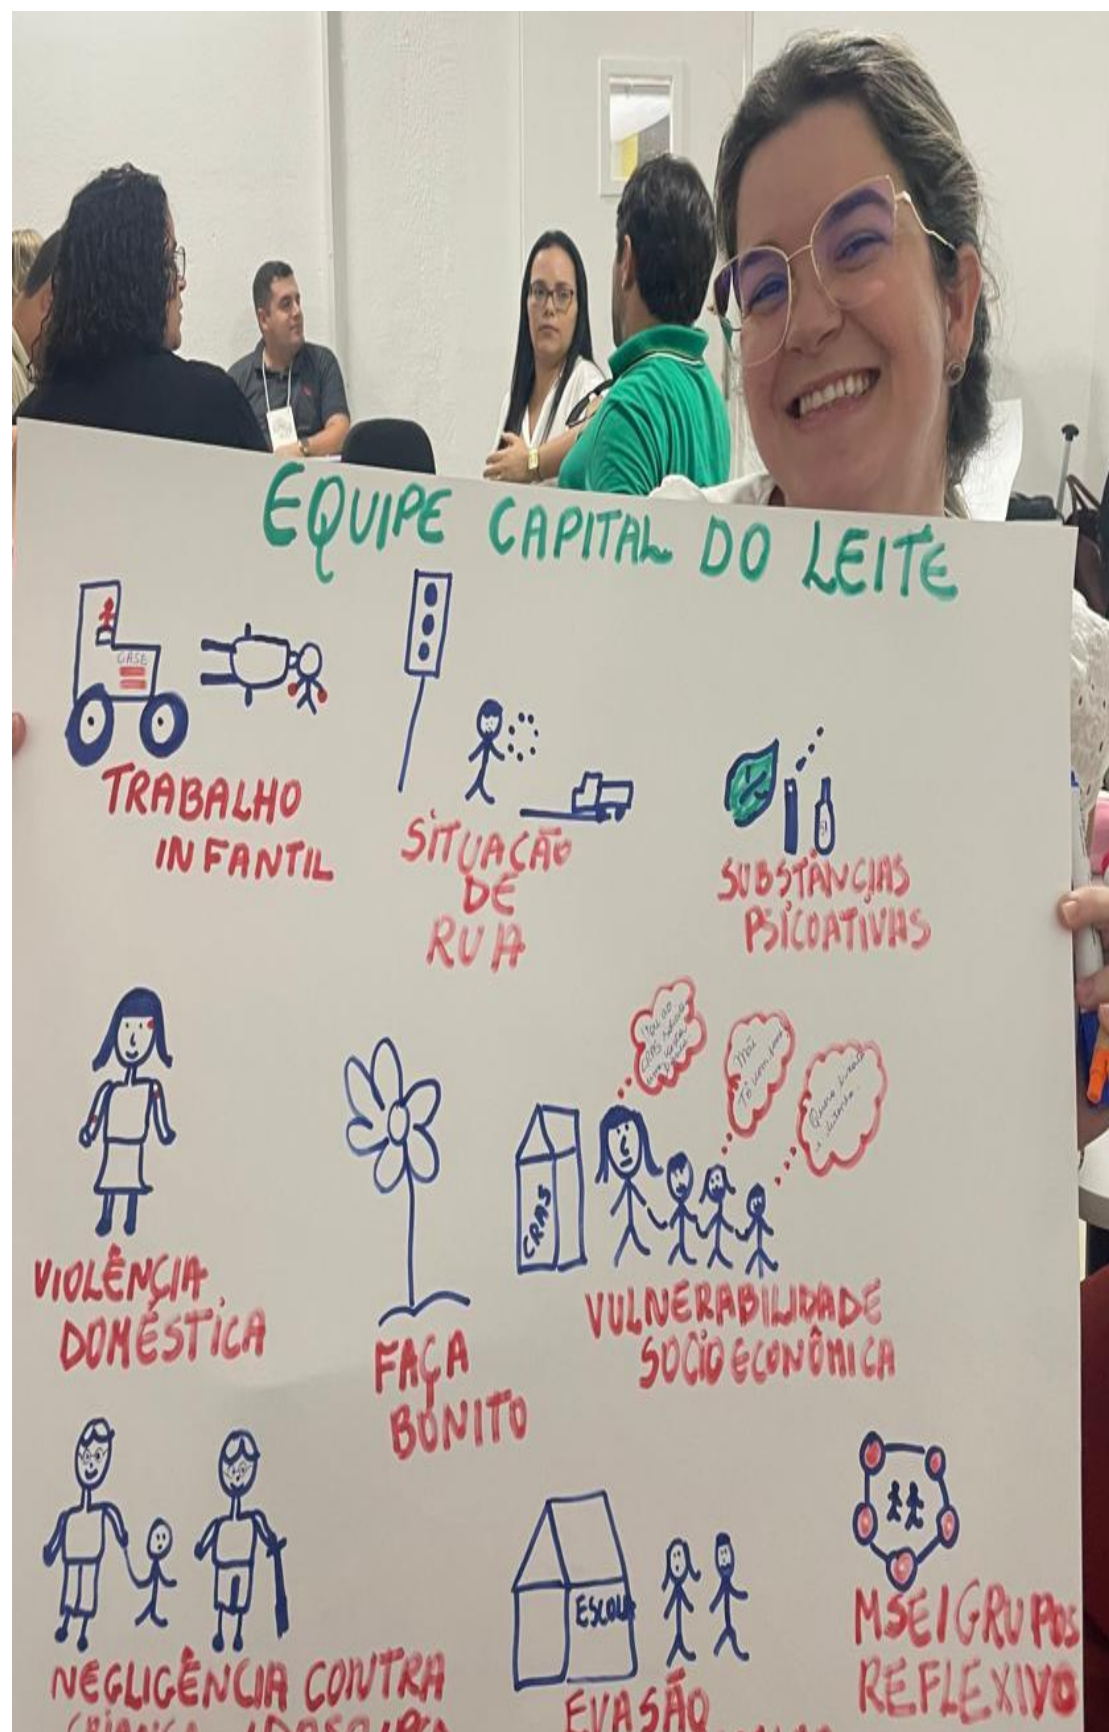 EQUIPE CAPITAL DO LEITE
CASE
TRABALHO
INFANTIL
SITUAÇÃO
DE
RUA
SUBSTÂNCIAS
PSICOATIVAS
VIOLÊNCIA
DOMÉSTICA
FAÇA
BONITO
Vou ao
CRAS
Mãe
Tô com fome
Quero
CRAS
VULNERABILIDADE
SOCIOECONÔMICA
NEGLIGÊNCIA CONTRA
ESCOLA
EVASÃO
MSE/GRUPOS
REFLEXIVO